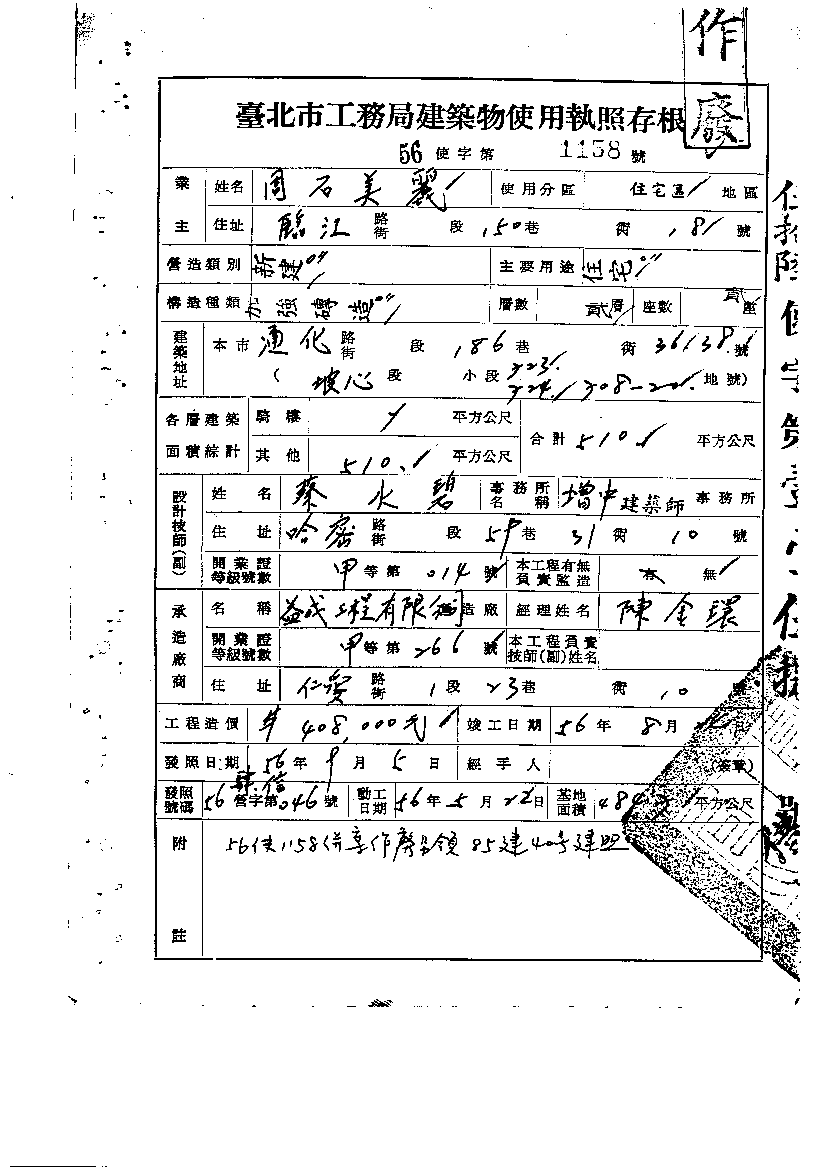 作廢
臺北市工務局建築物使用執照存根
56 使字第 1158 號
業主 姓名 周石美麗 使用分區 住宅區 地區
住址 臨江 路街 段 150 巷 衖 181 號
營造類別 新建 主要用途 住宅
構造種類 加強磚造 層數 貳層 座數 貳座
建築地址 本市 通化 路街 段 186 巷 衖 36138 號
( 坡心 段 小段 323 324 308-20 地號)
各層建築面積綜計 騎樓 平方公尺 合計 510 平方公尺
其他 510 平方公尺
設計技師(副) 姓名 蔡水碧 事務所名稱 增中建築師 事務所
住址 哈密 路街 段 59 巷 31 衖 10 號
開業證等級號數 甲 等第 014 號 本工程有無負責監造 有 無
承造廠商 名稱 益成工程有限公司 造廠 經理姓名 陳金環
開業證等級號數 甲 等第 266 號 本工程負責技師(副)姓名
住址 仁愛 路街 1 段 23 巷 衖 10 號
工程造價 408,000元 竣工日期 56 年 8 月
發照日期 56 年 9 月 5 日 經手人 (簽章)
發照號碼 56 營字第 046 號 動工日期 56 年 5 月 22 日 基地面積 484 平方公尺
附註 56使1158併案作廢另領85建40号建照